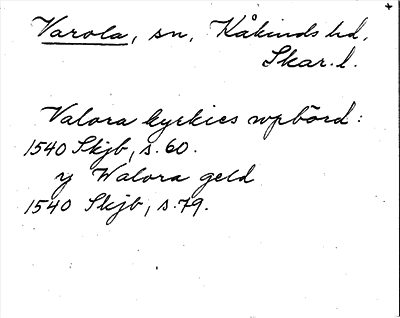 Varola, sn, Kåkinds hd,
Skar. l.
Valora kyrkies wpbörd:
1540 Skjb, s. 60.
y Walora geld
1540 Skjb, s. 79.